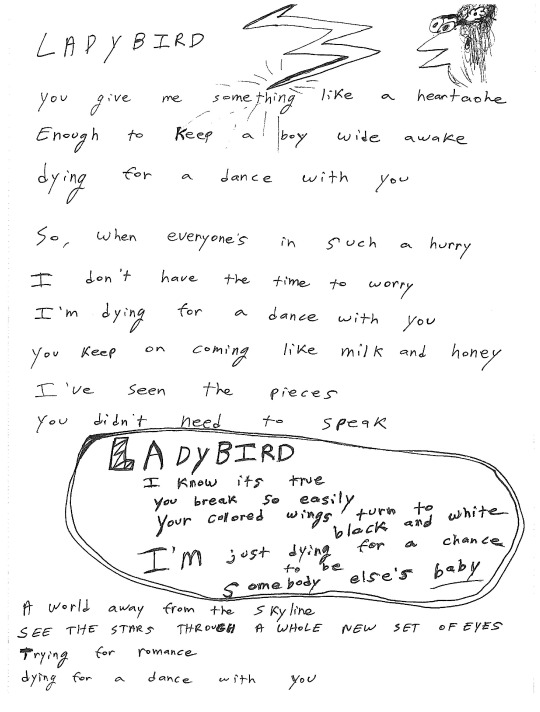 LADYBIRD
you give me something like a heartache
Enough to Keep a boy wide awake
dying for a dance with you
So, when everyone's in such a hurry
I don't have the time to worry
I'm dying for a dance with you
you keep on coming like milk and honey
I've seen the pieces
you didn't need to speak
LADYBIRD
I know its true
you break so easily
your colored wings turn to
black and white
I'm just dying for a chance
to be
somebody else's baby
A world away from the skyline
SEE THE STARS THROUGH A WHOLE NEW SET OF EYES
Trying for romance
dying for a dance with you